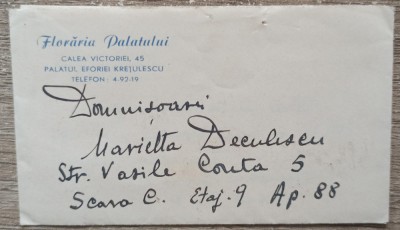 Florăria Palatului
CALEA VICTORIEI, 45
PALATUL EFORIEI KREȚULESCU
TELEFON: 4.92.19
Domnișoarei
Marietta Deculescu
Str. Vasile Conta 5
Scara C. Etaj. 9 Ap. 88